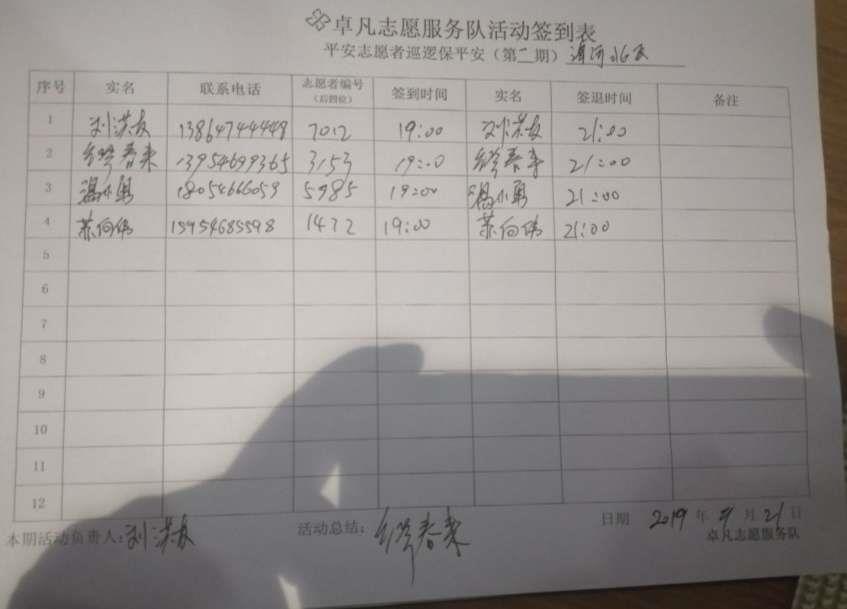 卓凡志愿服务队活动签到表
平安志愿者巡逻保平安（第二期）
序号 实名 联系电话 志愿者编号（后四位） 签到时间 实名 签退时间 备注
1 刘洪友 13864744448 7012 19:00 刘洪友 21:00
2 春来 13954699365 3153 19:00 春来 21:00
3 冯小勇 18054666059 5985 19:00 冯小勇 21:00
4 苏向伟 15954685598 1472 19:00 苏向伟 21:00
5
6
7
8
9
10
11
12
本期活动负责人：刘洪友 活动总结：春来 日期 2019年9月21日
卓凡志愿服务队